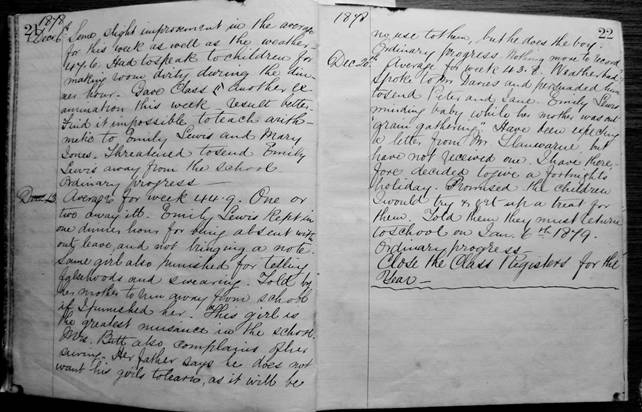 21
1878
Dec 6th Some slight improvement in the average
for this week as well as the weather
47.6. Had to speak to children for
making room dirty during the din-
ner hour. Gave Class another ex-
amination this week result better.
Find it impossible to teach arith-
metic to Emily Lewis and Mary
Jones. Threatened to send Emily
Lewis away from the school
Ordinary progress
Dec 13 Average for week 44.9. One or
two away ill. Emily Lewis kept in
one dinner hour for being absent with-
out leave, and not bringing a note.
Same girl also punished for telling
falsehoods and swearing. Told by
her mother to run away from school
if I punished her. This girl is
the greatest nuisance in the school.
Mrs. also complains of her
Her father says he does not
want his girls to learn, as it will be
1878
22
no use to them, but he does the boy.
Ordinary progress Nothing more to record
Dec 20th Average for week 43.8. Weather bad
Spoke to Mr Davies and persuaded him
to send Peter and Jane. Emily Lewis
minding baby while her mother was out
"grain gathering". Have been expecting
a letter from Mr. Llanwarne, but
have not received one. I have there-
fore decided to give a fortnights
holiday. Promised the children
I would try & get up a treat for
them. Told them they must return
to school on Jan. 6th 1879.
Ordinary progress
Close the Class Registers for the
Year